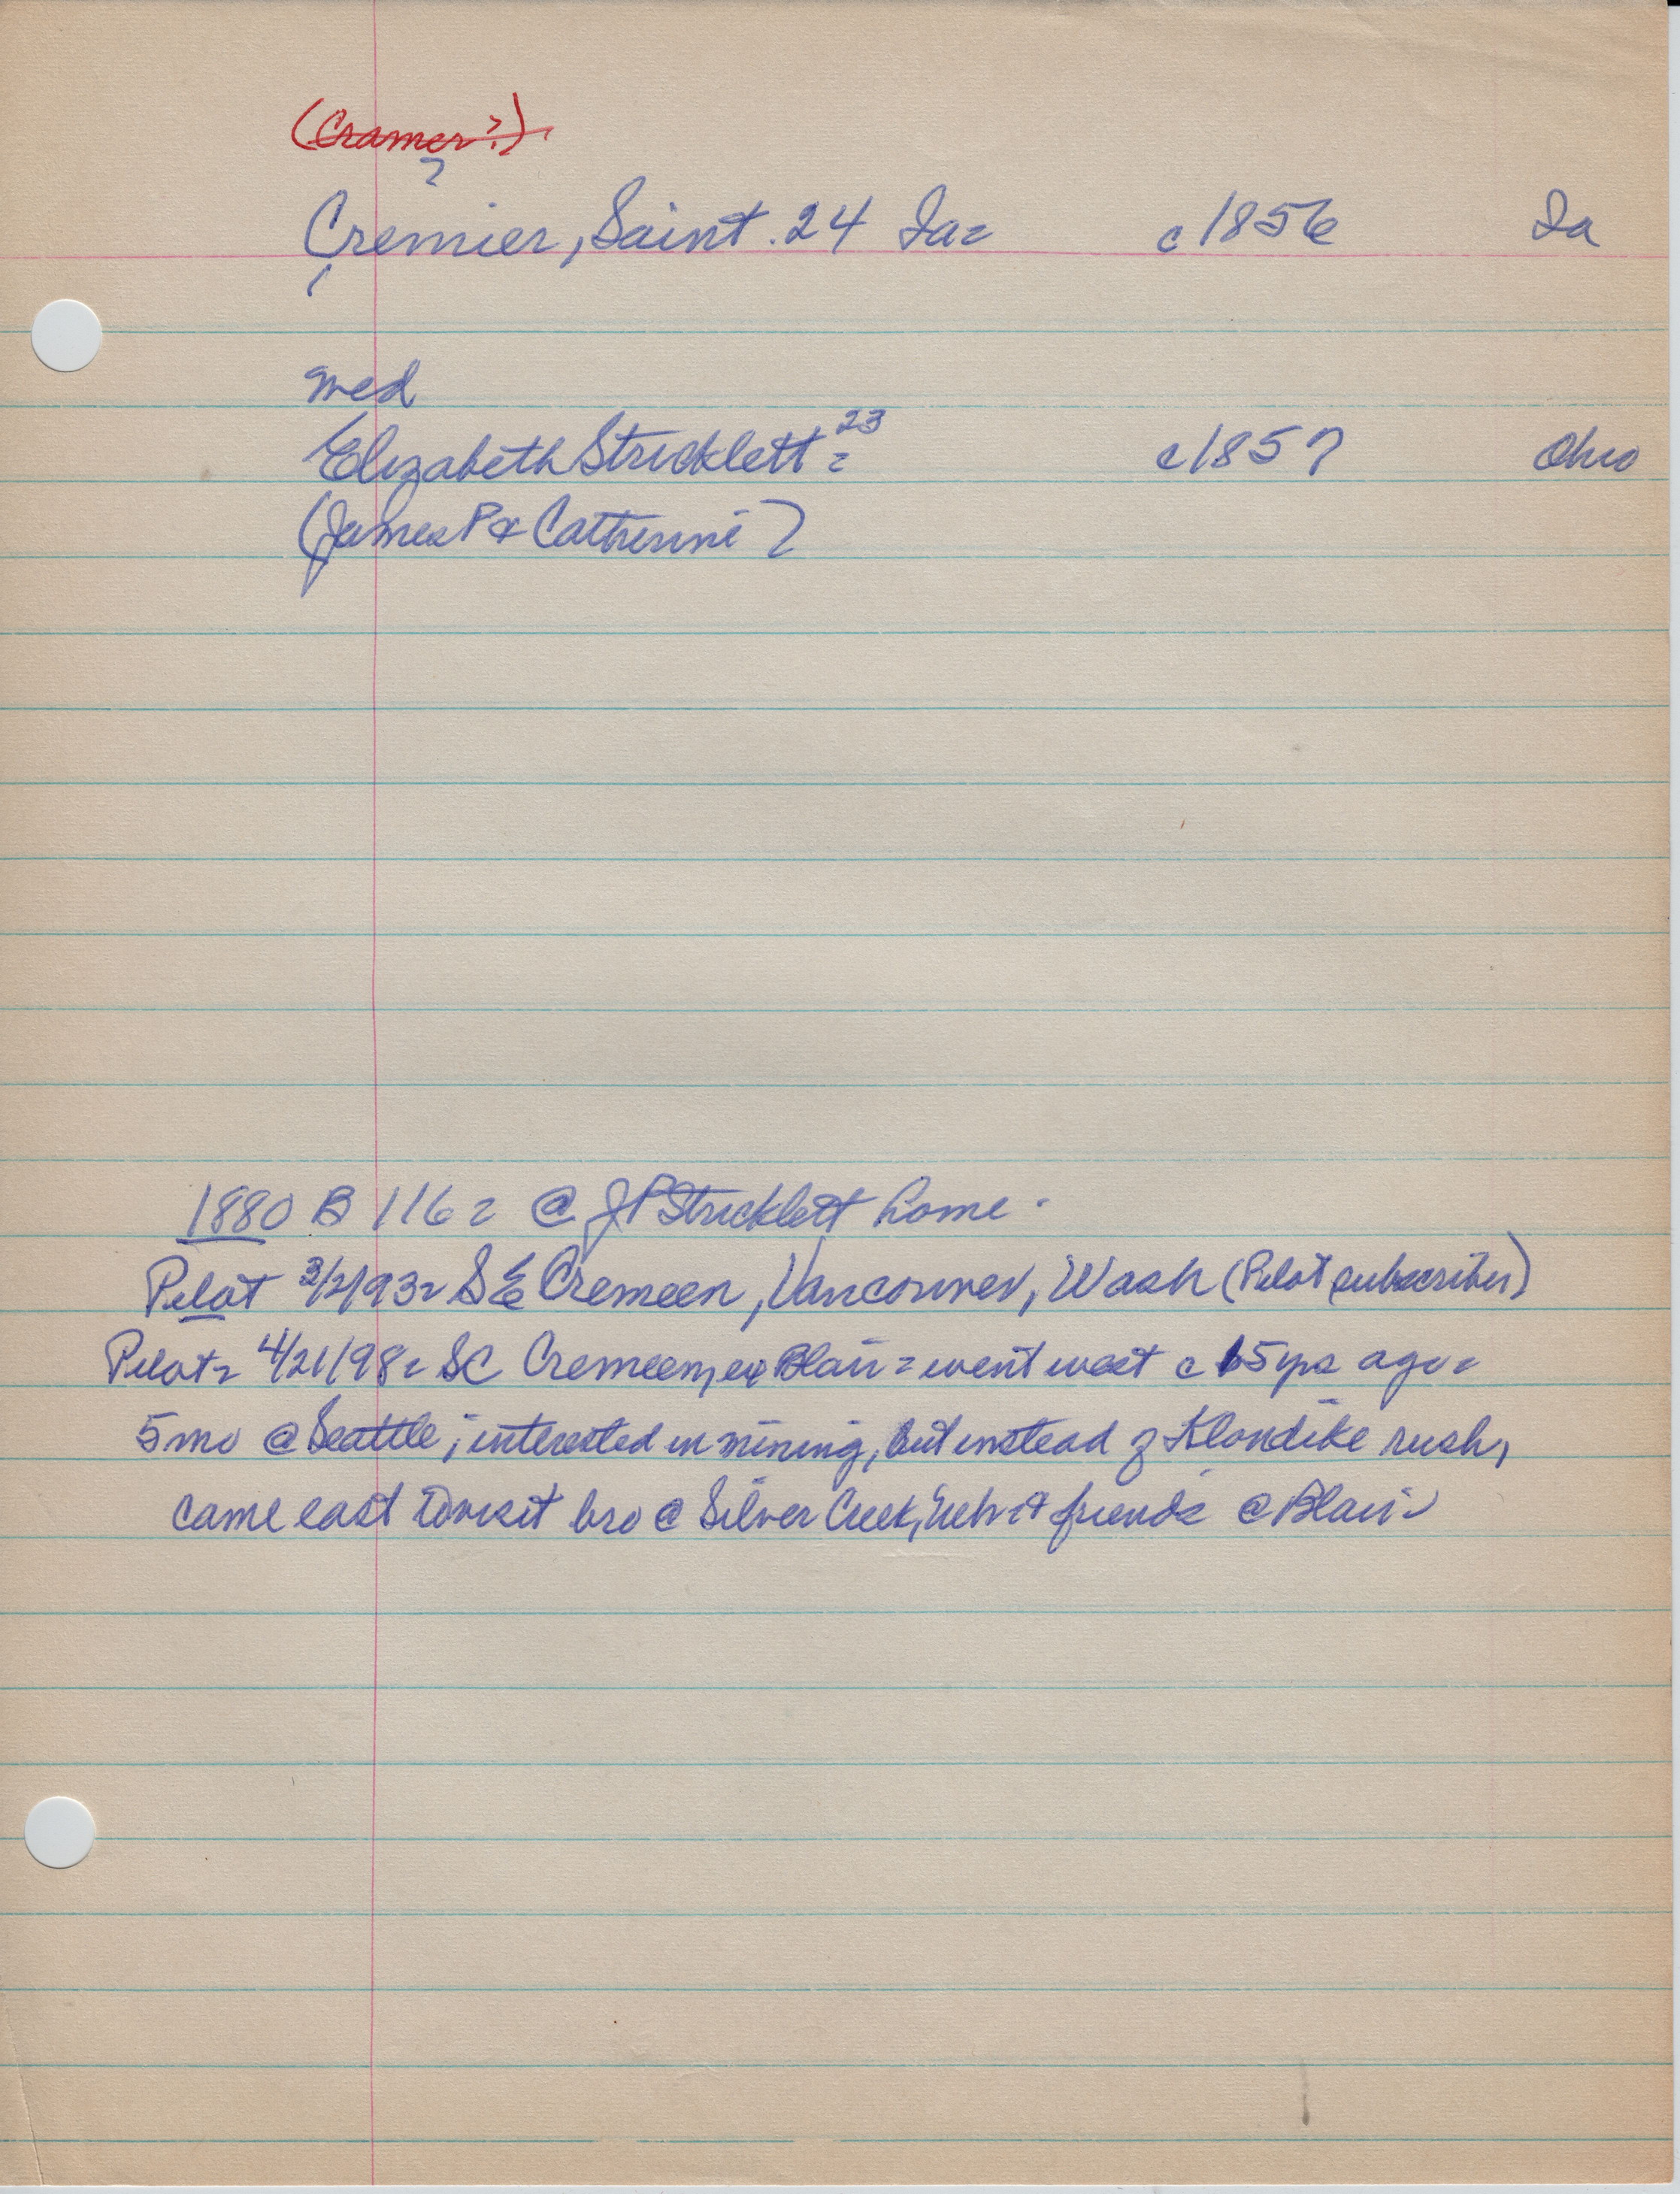 (Cramer?)
?
Cremier, Saint. 24 Ia=   c1856   Ia
med
Elizabeth Stricklett = 23   c1857   Ohio
(James P & Catherine)
1880 B 116 = @ JP Stricklett home -
Pilot 3/2/93 = S E Cremeen, Vancouver, Wash (Pilot subscriber)
Pilot = 4/21/98 = SC Cremeen, ex Blair = went west c 15 yrs ago =
5 mo @ Seattle; interested in mining, but instead of Klondike rush,
came east to visit bro @ Silver Creek, Neb & friends @ Blair -